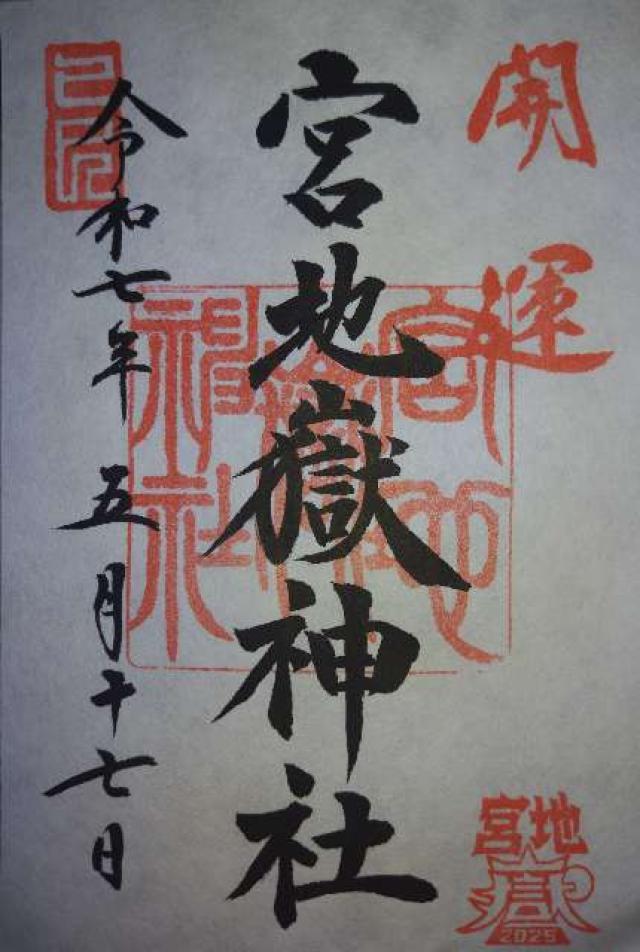 開運
宮地嶽神社
宮地嶽神社
令和七年 五月十七日
宮地
嶽
2025